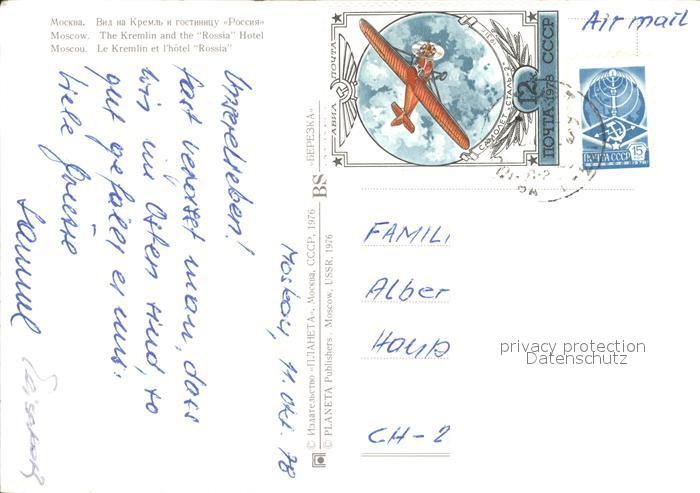 Москва. Вид на Кремль и гостиницу «Россия»
Moscow. The Kremlin and the "Rossia" Hotel
Moscou. Le Kremlin et l'hôtel "Rossia"
Air mail
ПОЧТА
АВИА
1931
САМОЛЕТ «СТАЛЬ-2»
12к
ПОЧТА • 1978 СССР
ПОЧТА СССР 15
Moskau, 11. Okt. 78
fast vergisst man, dass
wir im Osten sind, so
gut gefällt es uns.
Viele Grüsse
Samuel
«БЕРЕЗКА»
BS
© Издательство «ПЛАНЕТА». Москва, СССР, 1976
© PLANETA Publishers. Moscow, USSR. 1976
FAMILI
Alber
Haup
CH-2
privacy protection
Datenschutz